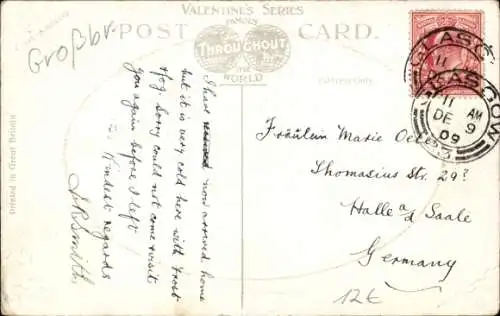 Großbr.
VALENTINE'S SERIES
POST CARD.
FAMOUS
THROUGHOUT
THE
WORLD
Address Only
Printed in Great Britain
I have now arrived home
but it is very cold here with frost
& fog. Sorry could not come & visit
you again before I left
Kindest regards
Smith
GLASGOW
11 AM
DE 9
09
Fräulein Marie
Thomasius Str. 29?
Halle a/d Saale
Germany
12€